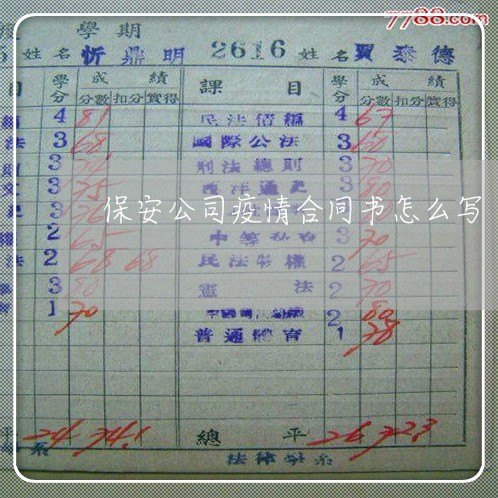 7788.com
學期
姓名 忻鼎明 2616 姓名 賈泰德
目 學分 成績 課目 學分 成績
分數 扣分 實得 分數 扣分 實得
4 81 民法債編 4 67
法 3 68 國際公法 3 60
3 刑法總則 3 70
3 75 西洋通史 3 80
保安公司疫情合同书怎么写
2 65 3 70
法 2 68 68 民法物權 2 65
3 80 憲法 2 70
1 70 2 80
普通體育 1 78
平 24 74.1 總平 26 72.3
系 法律學系